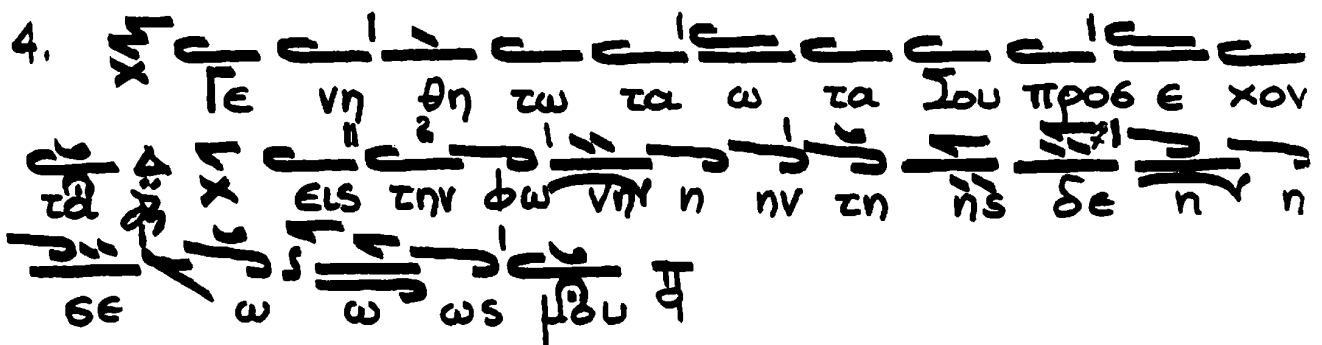 4. Γε νη θη τω τα ω τα Σου προσ ε χον
τα εις την φω νην η ην τη ης δε η η
σε ω ω ως μου